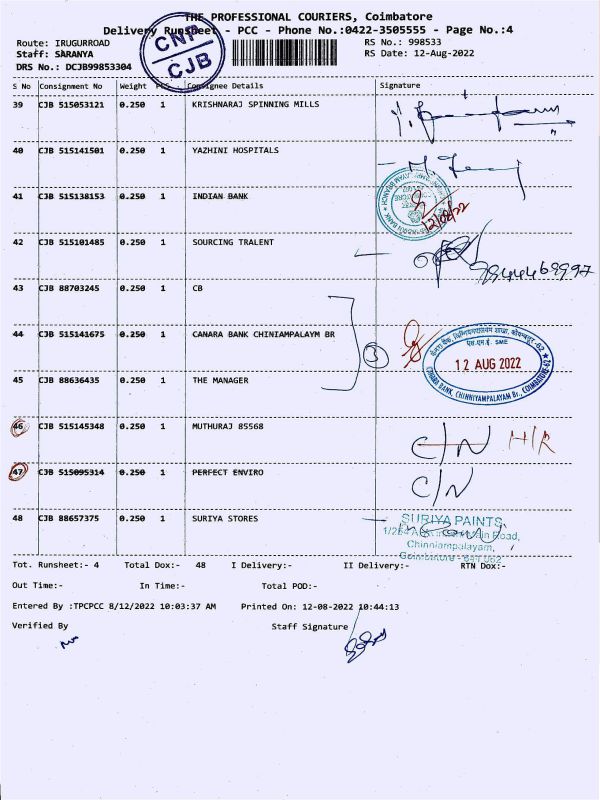 THE PROFESSIONAL COURIERS, Coimbatore
Delivery Runsheet - PCC - Phone No.:0422-3505555 - Page No.:4
Route: IRUGURROAD RS No.: 998533
Staff: SARANYA RS Date: 12-Aug-2022
DRS No.: DCJB99853304
CNP
CJB
S No Consignment No Weight PCS Consignee Details Signature
39 CJB 515053121 0.250 1 KRISHNARAJ SPINNING MILLS
40 CJB 515141501 0.250 1 YAZHINI HOSPITALS
41 CJB 515138153 0.250 1 INDIAN BANK
12/08/22
42 CJB 515101485 0.250 1 SOURCING TRALENT
43 CJB 88703245 0.250 1 CB
44 CJB 515141675 0.250 1 CANARA BANK CHINIAMPALAYM BR
3
एस.एम.ई. SME
12 AUG 2022
CANARA BANK, CHINNIYAMPALAYAM Br., COIMBATORE-62
45 CJB 88636435 0.250 1 THE MANAGER
46 CJB 515145348 0.250 1 MUTHURAJ 85568 C/N H/R
47 CJB 515095314 0.250 1 PERFECT ENVIRO C/N
48 CJB 88657375 0.250 1 SURIYA STORES
SURIYA PAINTS,
Road,
Chinniampalayam,
Coimbatore - 641 062
Tot. Runsheet:- 4 Total Dox:- 48 I Delivery:- II Delivery:- RTN Dox:-
Out Time:- In Time:- Total POD:-
Entered By :TPCPCC 8/12/2022 10:03:37 AM Printed On: 12-08-2022 10:44:13
Verified By Staff Signature